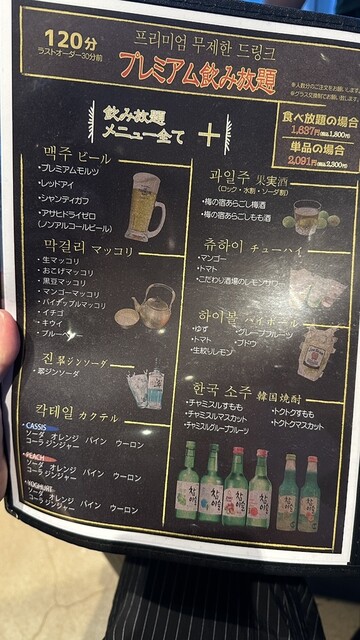 120分
ラストオーダー30分前
프리미엄 무제한 드링크
プレミアム飲み放題
※人数分のご注文をお願いします。
※グラス交換制でお願い致します。
飲み放題
メニュー全て +
食べ放題の場合
1,637円(税込1,800円)
単品の場合
2,091円(税込2,300円)
맥주 ビール
・プレミアムモルツ
・レッドアイ
・シャンディガフ
・アサヒドライゼロ
(ノンアルコールビール)
막걸리 マッコリ
・生マッコリ
・おこげマッコリ
・黒豆マッコリ
・マンゴーマッコリ
・パイナップルマッコリ
・イチゴ
・キウイ
・ブルーベリー
진 翠ジンソーダ
・翠ジンソーダ
칵테일 カクテル
・CASSIS
ソーダ オレンジ パイン ウーロン
コーラ ジンジャー
・PEACH
ソーダ オレンジ パイン ウーロン
コーラ ジンジャー
・YOGHURT
ソーダ オレンジ パイン ウーロン
コーラ ジンジャー
과일주 果実酒
(ロック・水割・ソーダ割)
・梅の宿あらごし梅酒
・梅の宿あらごしもも酒
츄하이 チューハイ
・マンゴー
・トマト
・こだわり酒場のレモンサワー
하이볼 ハイボール
・ゆず ・グレープフルーツ
・トマト ・ブドウ
・生絞りレモン
한국 소주 韓国焼酎
・チャミスルすもも ・トクトクすもも
・チャミスルマスカット ・トクトクマスカット
・チャミスルグレープフルーツ